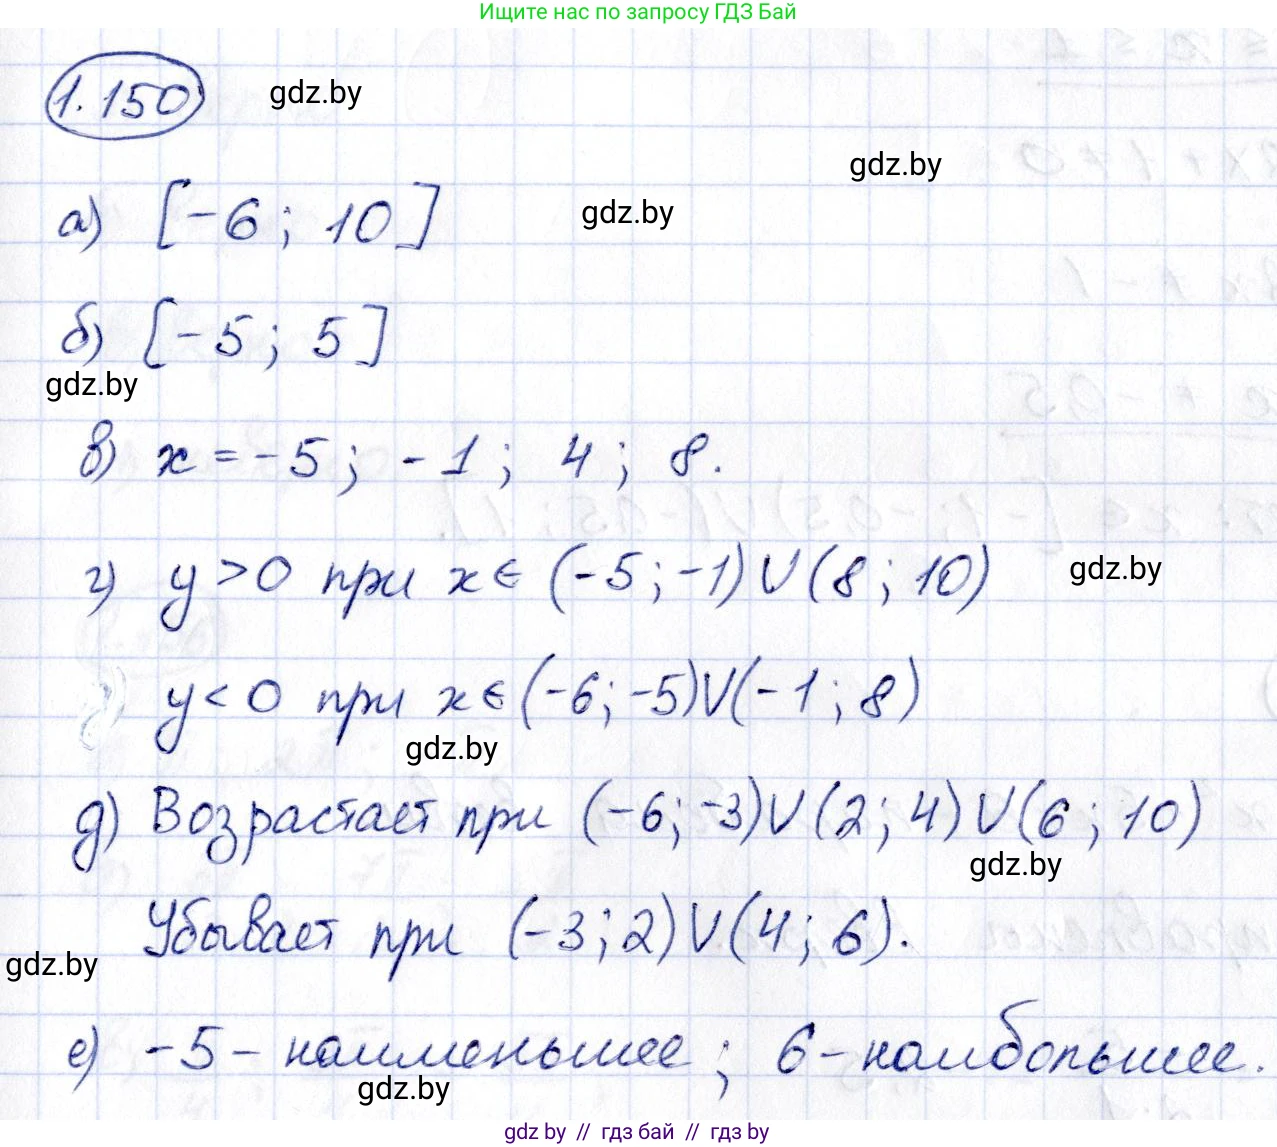 Ищите нас по запросу ГДЗ Бай
1.150 gdz.by
gdz.by
а) [-6; 10] gdz.by
б) [-5; 5]
gdz.by
в) x = -5; -1; 4; 8.
г) y > 0 при x ∈ (-5; -1) ∪ (8; 10) gdz.by
y < 0 при x ∈ (-6; -5) ∪ (-1; 8)
gdz.by
д) Возрастает при (-6; -3) ∪ (2; 4) ∪ (6; 10)
gdz.by
Убывает при (-3; 2) ∪ (4; 6).
gdz.by
е) -5 - наименьшее; 6 - наибольшее.
gdz.by
gdz by // гдз бай // гдз by